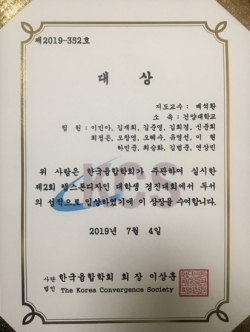 제2019-352호
대 상
지도교수 : 배석환
소 속 : 건양대학교
팀 원 : 이민아, 김재희, 김준영, 김희정, 신준희
최정은, 오상영, 오혜수, 유영선, 이 현
하민준, 최승화, 김범준, 연상민
위 사람은 한국융합학회가 주관하여 실시한
제2회 캡스톤디자인 대학생 경진대회에서 두서
의 성적으로 입상하였기에 이 상장을 수여합니다.
2019년 7월 4일
사단법인 한국융합학회 회장 이상훈
The Korea Convergence Society
KCS